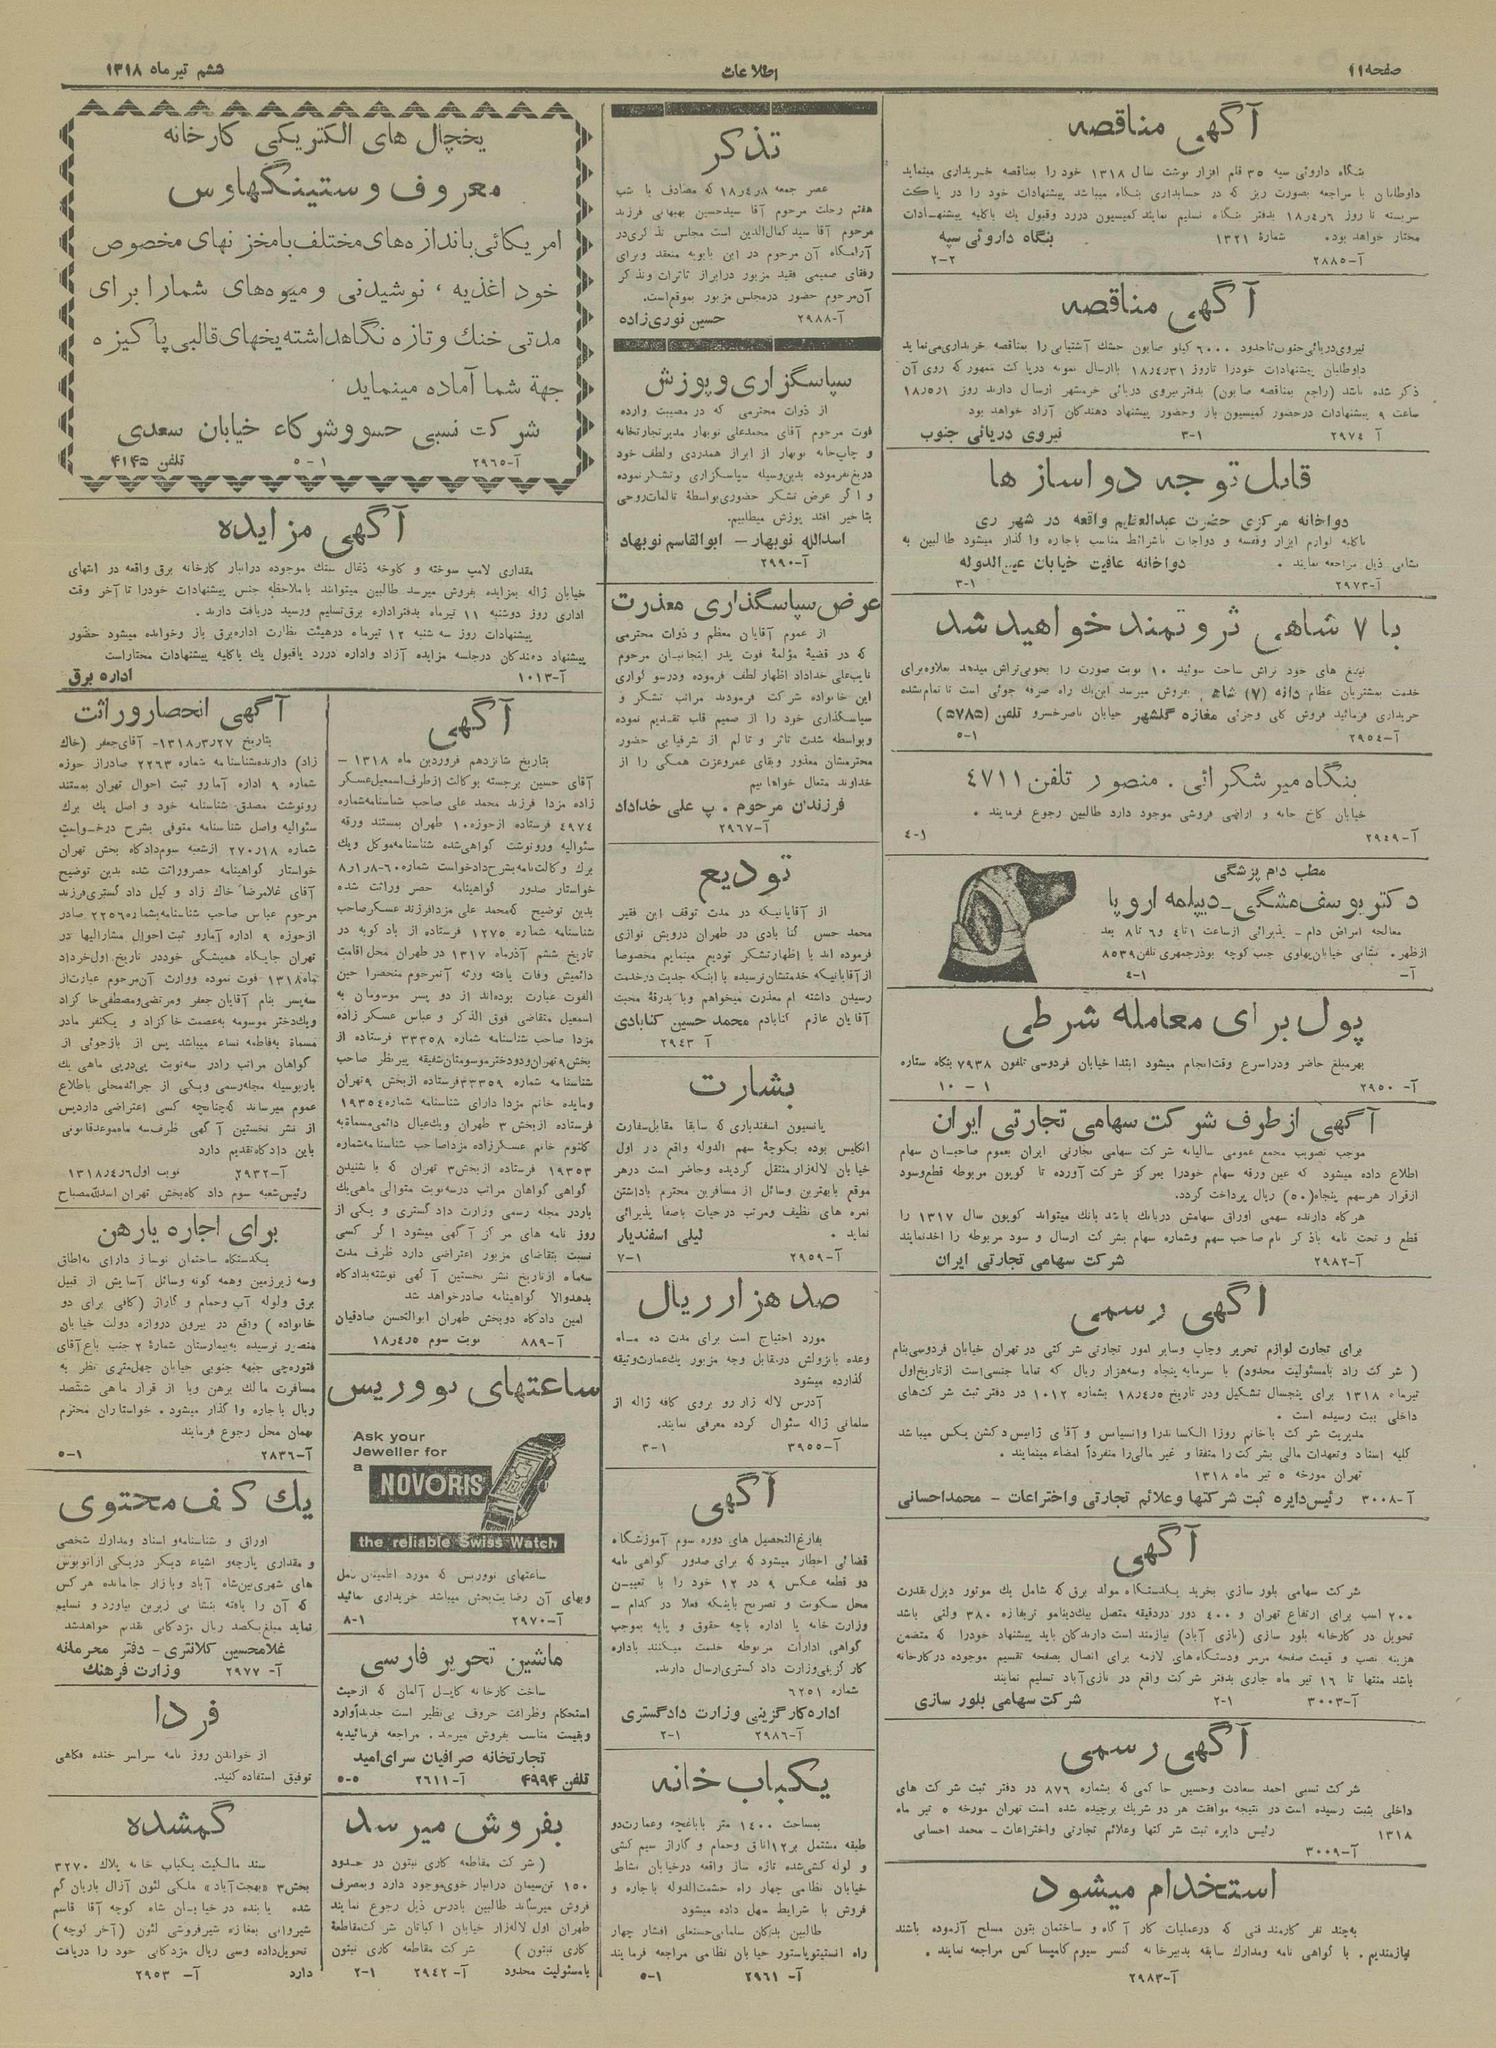 صفحه ۱۱
اطلاعات
ششم تیرماه ۱۳۱۸
آگهی مناقصه
بنگاه داروئی سپه ۳۵ قلم افزار نوشت سال ۱۳۱۸ خود را بمناقصه خریداری مینماید
داوطلبان با مراجعه بصورت ریز که در حسابداری بنگاه میباشد پیشنهادات خود را در پاکت
سربسته تا روز ۱۸٫۴٫۶ بدفتر بنگاه تسلیم نمایند کمیسیون دررد وقبول یك یاکلیه پیشنهادات
مختار خواهد بود. شمارهٔ ۱۳۲۱ بنگاه داروئی سپه
آ-۲۸۸۵ ۲-۲
آگهی مناقصه
نیروی دریائی جنوب تاحدود ۶۰۰۰ کیلو صابون خشك آشتیانی را بمناقصه خریداری می نماید
داوطلبان پیشنهادات خودرا تاروز ۱۸٫۴٫۳۱ باارسال نمونه درپاکت ممهور که روی آن
ذکر شده باشد (راجع بمناقصه صابون) بدفتر نیروی دریائی خرمشهر ارسال دارند روز ۱۸٫۵٫۱
ساعت ۹ پیشنهادات درحضور کمیسیون باز وحضور پیشنهاد دهندکان آزاد خواهد بود
آ ۲۹۷۴ ۳-۱ نیروی دریائی جنوب
قابل توجه دواساز ها
دواخانه مرکزی حضرت عبدالعظیم واقعه در شهر ری
باکلیه لوازم ابزار وقفسه و دواجات باشرائط مناسب باجاره واگذار میشود طالبین به
نشانی ذیل مراجعه نمایند . دواخانه عافیت خیابان عین الدوله
آ-۲۹۷۳ ۳-۱
با ۷ شاهی ثروتمند خواهید شد
تیغ های خود تراش ساخت سوئید ۱۰ نوبت صورت را بخوبی تراش میدهد بعلاوه برای
خدمت بمشتریان عظام دانه (۷) شاهی بفروش میرسد این یك راه صرفه جوئی است تا تمام نشده
خریداری فرمائید فروش کلی وجزئی مغازه گلشهر خیابان ناصرخسرو تلفن (۵۷۸۵)
آ-۲۹۵۴ ۵-۱
بنگاه میر شکرائی . منصور تلفن ۴۷۱۱
خیابان کاخ خانه و اراضی فروشی موجود دارد طالبین رجوع فرمایند .
آ-۲۹۴۹ ۴-۱
مطب دام پزشگی
دکتر یوسف مشگی - دیپلمه اروپا
معالجه امراض دام - پذیرائی ازساعت ۱ تا ۴ و ۶ تا ۸ بعد
ازظهر . نشانی خیابان پهلوی جنب کوچه بوذرجمهری تلفن ۸۵۳۹
آ- ۴-۱
پول برای معامله شرطی
بهرمبلغ حاضر ودراسرع وقت انجام میشود ابتدا خیابان فردوسی تلفون ۷۹۳۸ بنگاه ستاره
آ- ۲۹۵۰ ۱۰ - ۱
آگهی از طرف شرکت سهامی تجارتی ایران
بموجب تصویب مجمع عمومی سالیانه شرکت سهامی تجارتی ایران بعموم صاحبان سهام
اطلاع داده میشود که عین ورقه سهام خودرا بمرکز شرکت آورده تا کوپون مربوطه قطع وسود
ازقرار هرسهم پنجاه (۵۰) ریال پرداخت گردد.
هرگاه دارنده سهمی اوراق سهامش دربانك باشد بانك میتواند کوپون سال ۱۳۱۷ را
قطع و تحت نامه باذکر نام صاحب سهم وشماره سهام بشرکت ارسال و سود مربوطه را اخذ نمایند
آ-۲۹۸۲ شرکت سهامی تجارتی ایران
آگهی رسمی
برای تجارت لوازم تحریر وچاپ وسایر امور تجارتی شرکتی در تهران خیابان فردوسی بنام
( شرکت راد بامسئولیت محدود) با سرمایه پنجاه وسه هزار ریال که تماما جنسی است ازتاریخ اول
تیرماه ۱۳۱۸ برای پنجسال تشکیل ودر تاریخ ۱۸٫۴٫۵ بشماره ۱۰۱۲ در دفتر ثبت شرکت های
داخلی ثبت رسیده است .
مدیریت شرکت باخانم روزا الکساندرا وانسیانس و آقای ژانیس دکشن یکس میباشد
کلیه اسناد وتعهدات مالی بشرکت را متفقا و غیر مالی را منفرداً امضاء مینمایند .
تهران مورخه ۵ تیر ماه ۱۳۱۸
آ-۳۰۰۸ رئیس دایره ثبت شرکتها وعلائم تجارتی واختراعات - محمداحسانی
آگهی
شرکت سهامی بلور سازی بخرید یکدستگاه مولد برق که شامل یك موتور دیزل بقدرت
۲۰۰ اسب برای ارتفاع تهران و ۴۰۰ دور دردقیقه متصل بیك دینامو تریفازه ۳۸۰ ولتی باشد
تحویل در کارخانه بلور سازی (نازی آباد) نیازمند است دارندگان باید پیشنهاد خودرا که متضمن
هزینه نصب و قیمت صفحه مرمر ودستگاه های لازمه برای اتصال بصفحه تقسیم موجوده درکارخانه
باشد منتها تا ۱۶ تیر ماه جاری بدفتر شرکت واقع در نازی آباد تسلیم نمایند
آ-۳۰۰۳ ۲-۱ شرکت سهامی بلور سازی
آگهی رسمی
شرکت نسبی احمد سعادت وحسین حاکمی که بشماره ۸۷۶ در دفتر ثبت شرکت های
داخلی ثبت رسیده است در نتیجه موافقت هر دو شریك برچیده شده است تهران مورخه ۵ تیر ماه
۱۳۱۸ رئیس دایره ثبت شرکتها وعلائم تجارتی واختراعات - محمد احسانی
آ-۳۰۰۹
استخدام میشود
به چند نفر کارمند فنی که درعملیات کار آگاه و ساختمان بتون مسلح آزموده باشند
نیازمندیم . با گواهی نامه ومدارك سابقه بدبیرخانه کنسر سیوم کامپساکس مراجعه نمایند .
آ-۲۹۸۳
تذکر
عصر جمعه ۱۸٫۴٫۸ که مصادف با شب
هفتم رحلت مرحوم آقا سیدحسین بهبهانی فرزند
مرحوم آقا سید کمال الدین است مجلس تذکری در
آرامگاه آن مرحوم در ابن بابویه منعقد وبرای
رفقای صمیمی فقید مزبور درابراز تاثرات وتذکر
آن مرحوم حضور درمجلس مزبور بموقع است.
آ-۲۹۸۸ حسین نوری زاده
سپاسگزاری و پوزش
از ذوات محترمی که در مصیبت وارده
فوت مرحوم آقای محمدعلی نوبهار مدیر تجارتخانه
و چاپخانه نوبهار از ابراز همدردی ولطف خود
دریغ نفرموده بدین وسیله سپاسگزاری وتشکر نموده
و اگر عرض تشکر حضوری بواسطهٔ تالمات روحی
بتاخیر افتد پوزش میطلبیم.
اسدالله نوبهار - ابوالقاسم نوبهار
آ-۲۹۹۰
عرض سپاسگذاری معذرت
از عموم آقایان معظم و ذوات محترمی
که در قضیهٔ مؤلمهٔ فوت پدر اینجانبان مرحوم
نایب علی خداداد اظهار لطف فرموده ودرسوگواری
این خانواده شرکت فرمودند مراتب تشکر و
سپاسگذاری خود را از صمیم قلب تقدیم نموده
وبواسطه شدت تاثر و تالم از شرفیابی حضور
محترمشان معذور وبقای عمروعزت همگی را از
خداوند متعال خواهانیم
فرزندان مرحوم . پ علی خداداد
آ-۲۹۶۷
تودیع
از آقایانیکه در مدت توقف این فقیر
محمد حسن کنابادی در طهران درویش نوازی
فرموده اند با اظهار تشکر تودیع مینمایم مخصوصا
از آقایانیکه خدمتشان نرسیده یا اینکه جدیت درخدمت
رسیدن داشته ام معذرت میخواهم وبا بدرقهٔ محبت
آقایان عازم کنابادم محمد حسین کنابادی
آ ۲۹۴۳
بشارت
پانسیون اسفندیاری که سابقا مقابل سفارت
انگلیس بوده بکوچهٔ سهم الدوله واقع در اول
خیابان لاله زار منتقل گردیده وحاضر است درهر
موقع بابهترین وسائل از مسافرین محترم باداشتن
نمره های نظیف ومرتب در حیات باصفا پذیرائی
نماید . لیلی اسفندیار
آ-۲۹۵۹ ۷-۱
صد هزار ریال
مورد احتیاج است برای مدت ده ماه
وعده بانزولش درمقابل وجه مزبور یك عمارت وثیقه
گذارده میشود
آدرس لاله زار رو بروی کافه ژاله از
سلمانی ژاله سئوال کرده معرفی نمایند.
آ-۳۹۵۵ ۳-۱
آگهی
بفارغ التحصیل های دوره سوم آموزشگاه
قضائی اخطار میشود که برای صدور گواهی نامه
دو قطعه عکس ۹ در ۱۲ خود را با تعیین
محل سکونت و تصریح باینکه فعلا در کدام
وزارت خانه یا اداره باچه حقوق و پایه بموجب
گواهی ادارات مربوطه خدمت میکنند باداره
کارگزینی وزارت دادگستری ارسال دارند.
شماره ۶۲۵۱
اداره کارگزینی وزارت دادگستری
آ-۲۹۸۶ ۲-۱
یکباب خانه
بمساحت ۱۴۰۰ متر باباغچه وعمارت دو
طبقه مشتمل بر۱۲اتاق وحمام و گاراز سیم کشی
و لوله کشی شده تازه ساز واقعه درخیابان نشاط
خیابان نظامی چهار راه حشمت الدوله باجاره و
فروش با شرایط سهل داده میشود
طالبین بدکان سلمانی حسنعلی افشار چهار
راه انستیتو پاستور خیابان نظامی مراجعه فرمایند
آ- ۲۹۶۱ ۵-۱
یخچال های الکتریکی کارخانه
معروف وستینگهاوس
امریکائی باندازه های مختلف بامخزنهای مخصوص
خود اغذیه ، نوشیدنی و میوه های شمارا برای
مدتی خنك وتازه نگاهداشته یخهای قالبی پاکیزه
جهة شما آماده مینماید
شرکت نسبی حسو وشرکاء خیابان سعدی
آ-۲۹۶۵ ۵-۱ تلفن ۴۱۴۵
آگهی مزایده
مقداری لامپ سوخته و کاوخه ذغال سنك موجوده درانبار کارخانه برق واقعه در انتهای
خیابان ژاله بمزایده بفروش میرسد طالبین میتوانند باملاحظه جنس پیشنهادات خودرا تا آخر وقت
اداری روز دوشنبه ۱۱ تیرماه بدفتر اداره برق تسلیم ورسید دریافت دارند .
پیشنهادات روز سه شنبه ۱۲ تیرماه درهیئت نظارت اداره برق باز وخوانده میشود حضور
پیشنهاد دهندکان درجلسه مزایده آزاد واداره دررد یاقبول یك یاکلیه پیشنهادات مختاراست
آ-۱۰۱۳ اداره برق
آگهی
بتاریخ شانزدهم فروردین ماه ۱۳۱۸ -
آقای حسین برجسته بوکالت ازطرف اسمعیل عسکر
زاده مزدا فرزند محمد علی صاحب شناسنامه شماره
۴۹۷۴ فرستاده ازحوزه ۱۰ طهران بمستند ورقه
سئوالیه ورونوشت گواهی شده شناسنامه موکل ویك
برك وکالت نامه بشرح دادخواست شماره ۶۰-۸٫۱٫۸
خواستار صدور گواهینامه حصر وراثت شده
بدین توضیح که محمد علی مزدا فرزند عسکر صاحب
شناسنامه شماره ۱۲۷۵ فرستاده از باد کوبه در
تاریخ ششم آذرماه ۱۳۱۷ در طهران محل اقامت
دائمیش وفات یافته ورثه آنمرحوم منحصرا حین
الفوت عبارت بوده اند از دو پسر موسومان به
اسمعیل متقاضی فوق الذکر و عباس عسکر زاده
مزدا صاحب شناسنامه شماره ۳۳۳۵۸ فرستاده از
بخش ۹ تهران ودودختر موسومتان شفیقه پیرنظر صاحب
شناسنامه شماره ۳۳۳۵۹ فرستاده ازبخش ۹ تهران
ومایده خانم مزدا دارای شناسنامه شماره ۱۹۳۵۴
فرستاده ازبخش ۳ طهران ویك عیال دائمی مسماة به
کلثوم خانم عسکر زاده مزدا صاحب شناسنامه شماره
۱۹۳۵۳ فرستاده ازبخش ۳ تهران که با شنیدن
گواهی گواهان مراتب درسه نوبت متوالی ماهی یك
باردر مجله رسمی وزارت دادگستری و یکی از
روز نامه های مرکز آگهی میشود اگر کسی
نسبت بتقاضای مزبور اعتراضی دارد ظرف مدت
سه ماه ازتاریخ نشر نخستین آگهی نوشته بدادگاه
بدهد والا گواهینامه صادر خواهد شد
امین دادگاه دوبخش طهران ابوالحسن صادقیان
آ-۸۸۹ نوبت سوم ۱۸٫۴٫۵
ساعتهای نووریس
Ask your
Jeweller for
a NOVORIS
the reliable Swiss Watch
ساعتهای نووریس که مورد اطمینان کامل
وبهای آن رضایت بخش میباشد خریداری نمائید
آ-۲۹۷۰ ۸-۱
ماشین تحریر فارسی
ساخت کارخانه کاپل آلمان که ازحیث
استحکام وظرافت حروف بی نظیر است جدیداً وارد
وبقیمت مناسب بفروش میرسد . مراجعه فرمائید به
تجارتخانه صرافیان سرای امید
تلفن ۴۹۹۴ آ-۲۶۱۱ ۵-۵
بفروش میرسد
( شرکت مقاطعه کاری نیتون در حدود
۱۵۰ تن سیمان درانبار خوی موجود دارد وبمصرف
فروش میرساند طالبین بآدرس ذیل رجوع نمایند
طهران اول لاله زار خیابان اکباتان شرکت مقاطعهٔ
کاری نیتون ) شرکت مقاطعه کاری نیتون
بامسئولیت محدود آ- ۲۹۴۲ ۲-۱
آگهی انحصار وراثت
بتاریخ ۱۳۱۸٫۳٫۲۷ - آقای جعفر (خاك
زاد) دارنده شناسنامه شماره ۲۲۶۳ صادراز حوزه
شماره ۹ اداره آمارو ثبت احوال تهران بمستند
رونوشت مصدق شناسنامه خود و اصل یك برك
سئوالیه واصل شناسنامه متوفی بشرح درخواست
شماره ۲۷۰٫۱۸ ازشعبه سوم دادگاه بخش تهران
خواستار گواهینامه حصروراثت شده بدین توضیح
آقای غلامرضا خاك زاد و کیل دادگستری فرزند
مرحوم عباس صاحب شناسنامه بشماره ۲۲۵۶ صادر
ازحوزه ۹ اداره آمارو ثبت احوال مشارالیها در
تهران جایگاه همیشگی خوددر تاریخ اول خرداد
ماه ۱۳۱۸ فوت نموده ووارث آن مرحوم عبارت از
سه پسر بنام آقایان جعفر ومرتضی ومصطفی خاکزاد
ویك دختر موسومه به عصمت خاکزاد و یکنفر مادر
مسماة به فاطمه نساء میباشد پس از بازجوئی از
گواهان مراتب رادر سه نوبت پی درپی ماهی یك
باربوسیله مجله رسمی ویکی از جرائد محلی باطلاع
عموم میرساند که چنانچه کسی اعتراضی دارد پس
از نشر نخستین آگهی ظرف سه ماه موعد قانونی
باین دادگاه تقدیم دارد
آ-۲۹۳۲ نوبت اول ۱۳۱۸٫۴٫۶
رئیس شعبه سوم دادگاه بخش تهران اسدالله مصباح
برای اجاره یارهن
یکدستگاه ساختمان نوساز دارای نه اطاق
وسه زیرزمین وهمه گونه وسائل آسایش از قبیل
برق ولوله آب وحمام و گاراژ (کافی برای دو
خانواده ) واقع در بیرون دروازه دولت خیابان
منصور نرسیده به بیمارستان شمارهٔ ۲ جنب باغ آقای
فتوره چی جبهه جنوبی خیابان چهل متری نظر به
مسافرت مالك برهن ویا از قرار ماهی ششصد
ریال باجاره واگذار میشود . خواستاران محترم
بهمان محل رجوع فرمایند
آ-۲۸۳۶ ۵-۱
یك کیف محتوی
اوراق و شناسنامه و اسناد ومدارك شخصی
و مقداری پارچه و اشیاء دیگر دریکی ازاتوبوس
های شهری بین شاه آباد وبازار جامانده هرکس
که آن را یافته بنشانی زیرین بیاورد و تسلیم
نماید مبلغ یکصد ریال مژدگانی تقدیم خواهد شد
غلامحسین کلانتری - دفتر محرمانه
آ- ۲۹۷۷ وزارت فرهنگ
فردا
از خواندن روز نامه سراسر خنده فکاهی
توفیق استفاده کنید.
گمشده
سند مالکیت یکباب خانه پلاك ۳۲۷۰
بخش ۳ «بهجت آباد» ملکی لئون آزال باریان گم
شده یابنده در خیابان شاه کوچه آقا قاسم
شیروانی بمغازه شیرفروشی لئون (آخر کوچه)
تحویل داده وسی ریال مژدگانی خود را دریافت
دارد آ- ۲۹۵۳